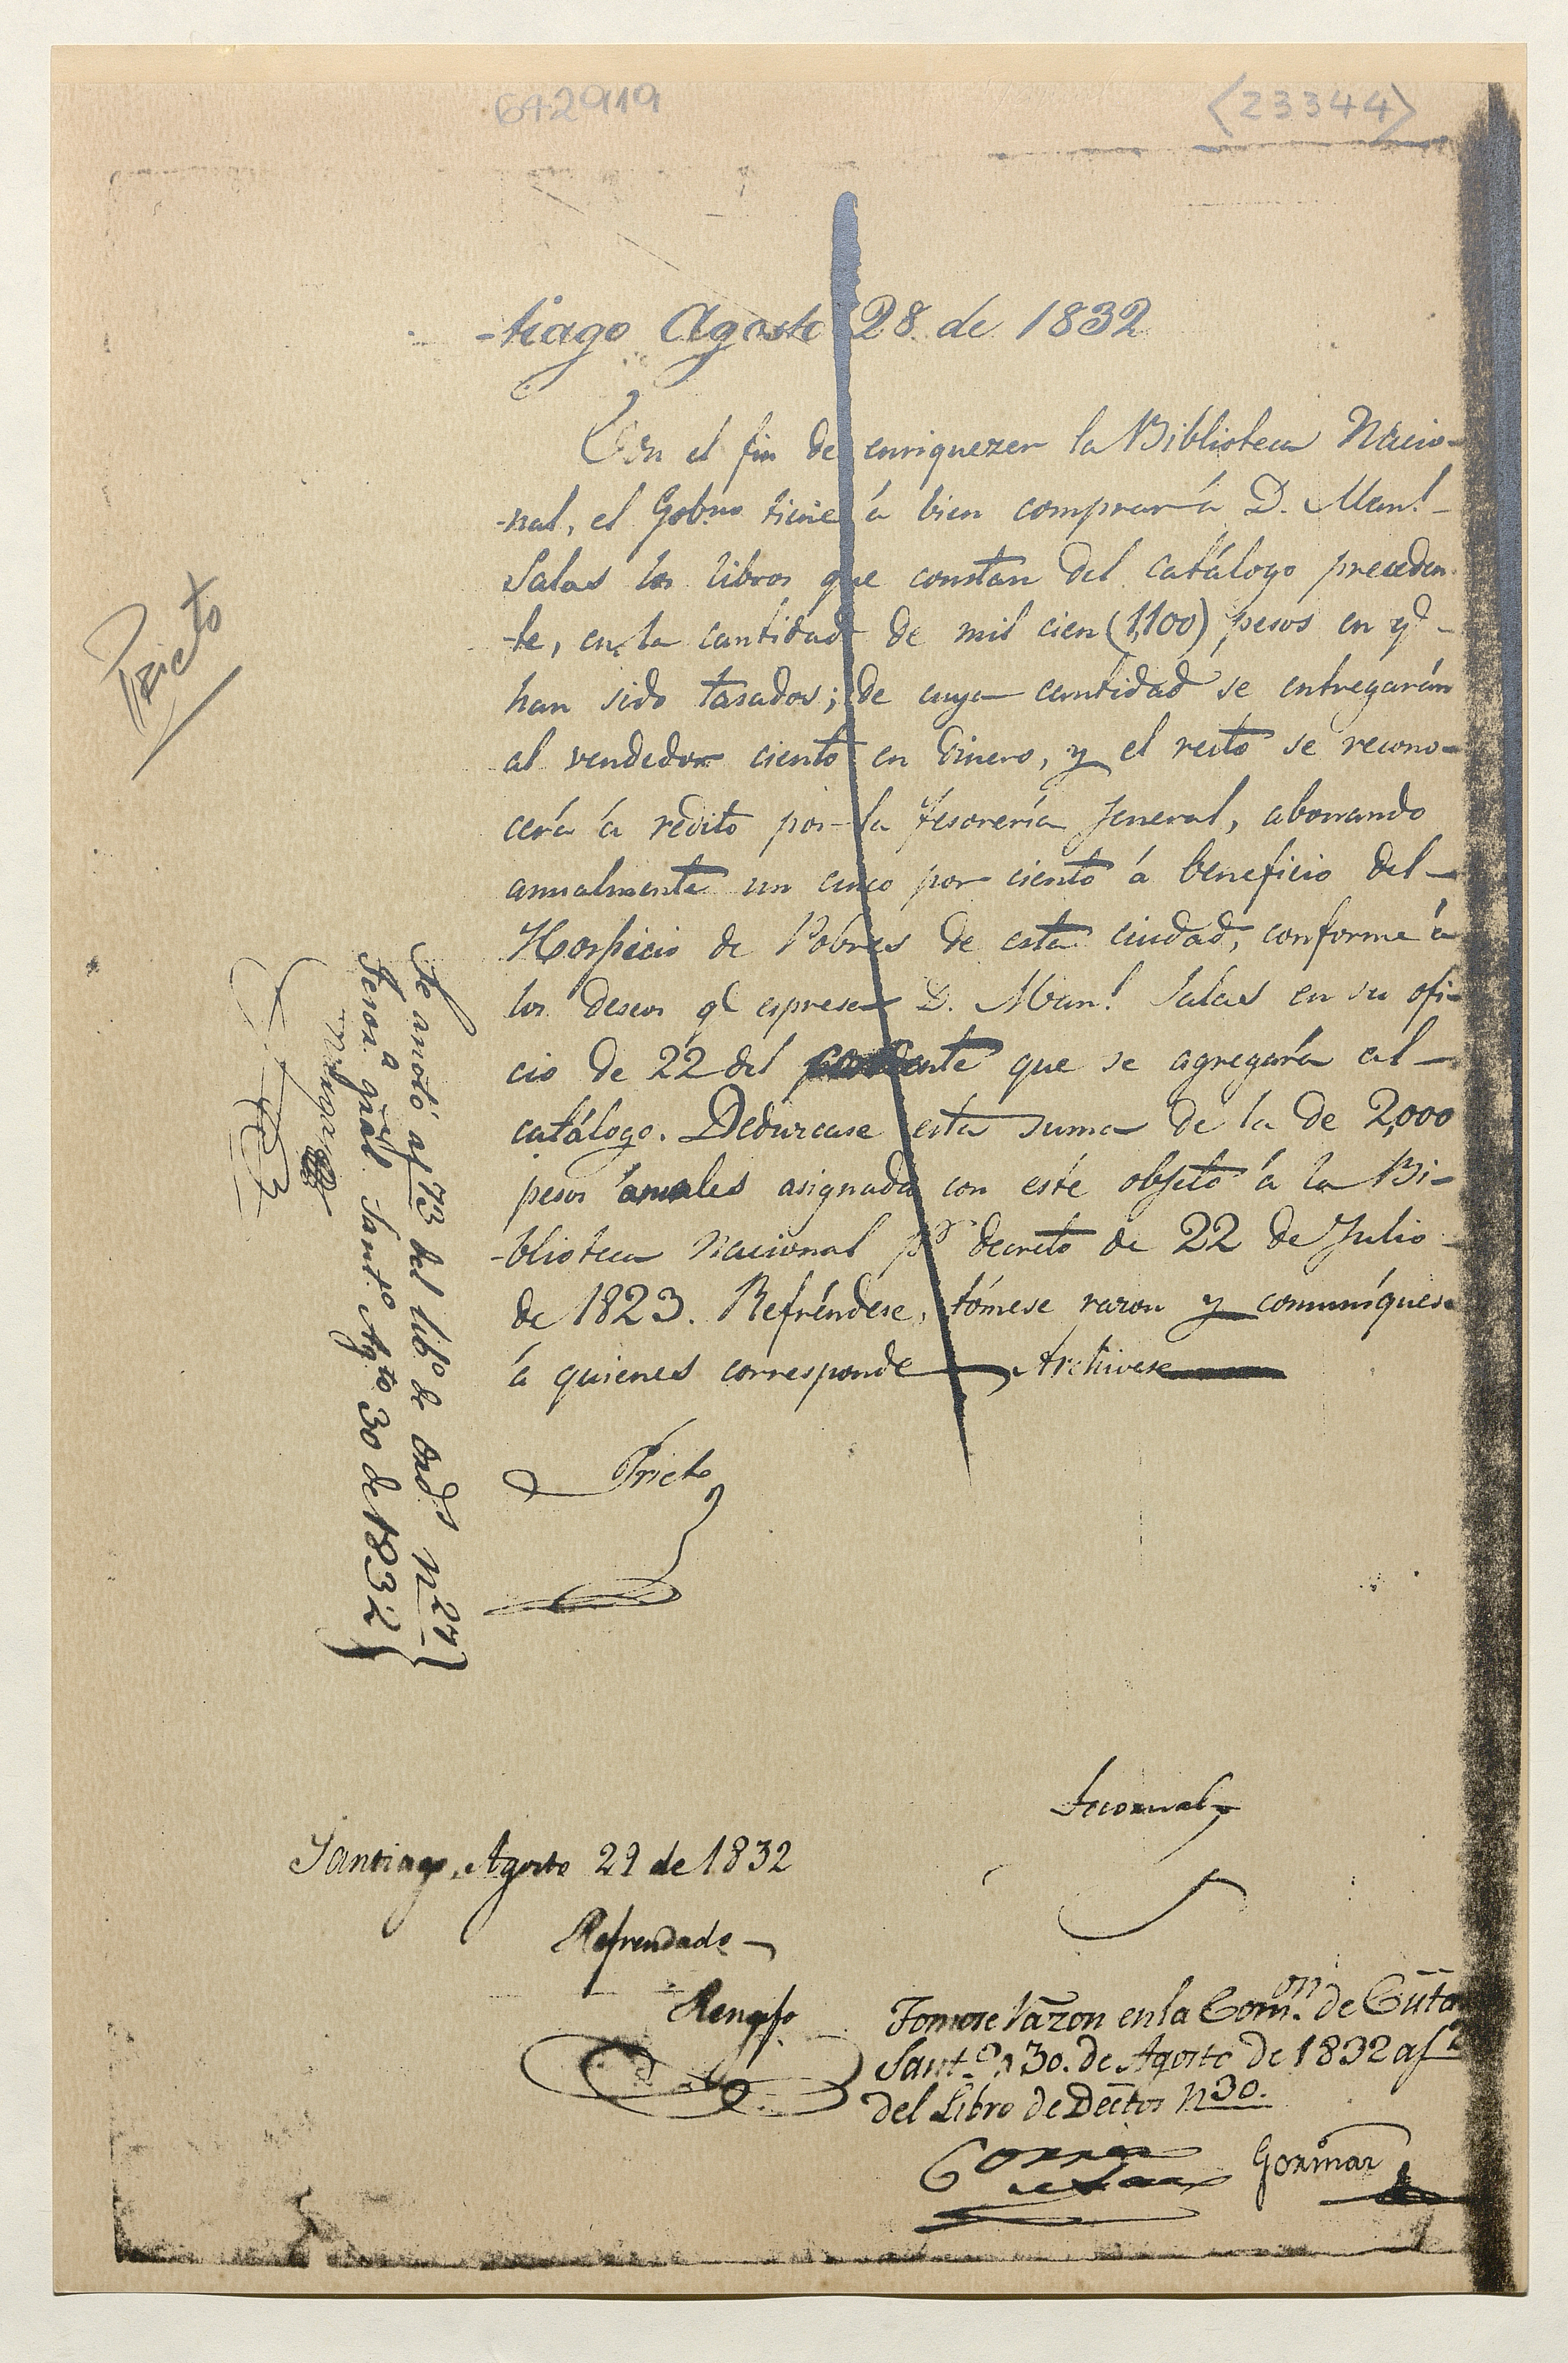 642919
<23344>
-tiago Agosto 28 de 1832
Con el fin de enriquezer la Biblioteca Nacio-
-nal, el Gobno tiene á bien comprar á D. Manl
Salas los libros que constan del catálogo preceden-
-te, en la cantidad de mil cien (1,100) pesos en qe
han sido tasados; de cuya cantidad se entregarán
al vendedor ciento en dinero, y el resto se recono-
cerá á rédito por la Tesorería Jeneral, abonando
anualmente un cinco por ciento á beneficio del
Hospicio de Pobres de esta ciudad, conforme á
los deseos qe espresa D. Manl Salas en su ofi-
cio de 22 del que se agregará al
catálogo. Dedúzcase esta suma de la de 2,000
pesos anuales asignada con este objeto á la Bi-
-blioteca Nacional pr decreto de 22 de Julio
de 1823. Refréndese, tómese razon y comuníquese
á quienes corresponde Archívese
Prieto
Prieto
Se anotó af 73 del libo de ords n 27
Tesora gral Santo Agto 30 de 1832
Tocornal
Santiago, Agosto 29 de 1832
Refrendado
Rengifo
Tomose razon en la Comon de Cuta
Santo 30. de Agosto de 1832 af
del Libro de Dectos N 30.
Correa
Gormaz